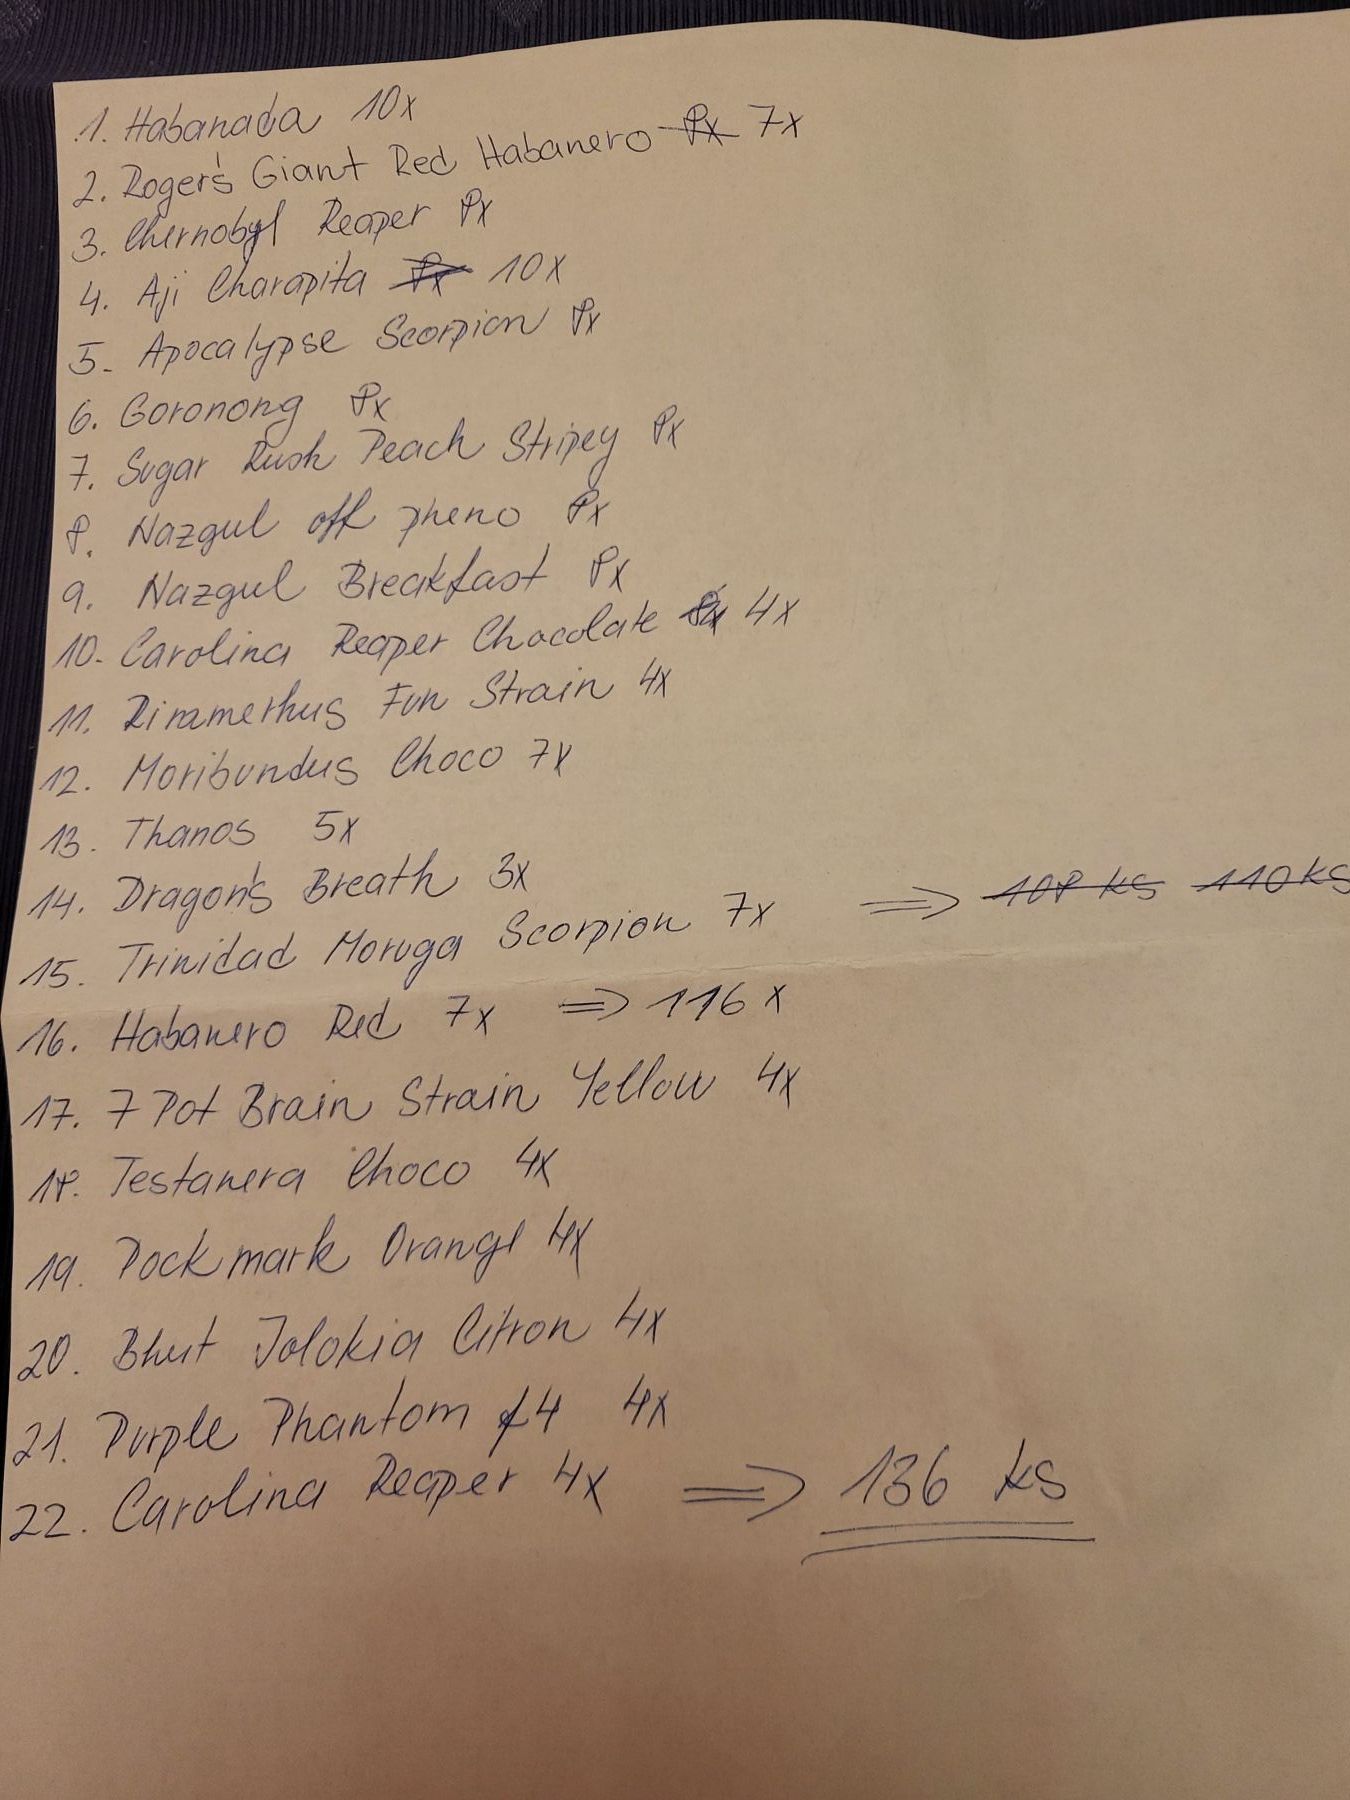 1. Habanada 10x
2. Roger's Giant Red Habanero 8x 7x
3. Chernobyl Reaper 8x
4. Aji Charapita 8x 10x
5. Apocalypse Scorpion 8x
6. Goronong 8x
7. Sugar Rush Peach Stripey 8x
8. Nazgul off pheno 8x
9. Nazgul Breakfast 8x
10. Carolina Reaper Chocolate 4x
11. Rimmerthus Fun Strain 4x
12. Moribundus Choco 7x
13. Thanos 5x
14. Dragon's Breath 3x
15. Trinidad Moruga Scorpion 7x ⇒ 108 ks 110 ks
16. Habanero Red 7x ⇒ 116 x
17. 7 Pot Brain Strain Yellow 4x
18. Testanera Choco 4x
19. Pockmark Orange 4x
20. Bhut Jolokia Citron 4x
21. Purple Phantom f4 4x
22. Carolina Reaper 4x ⇒ 136 ks